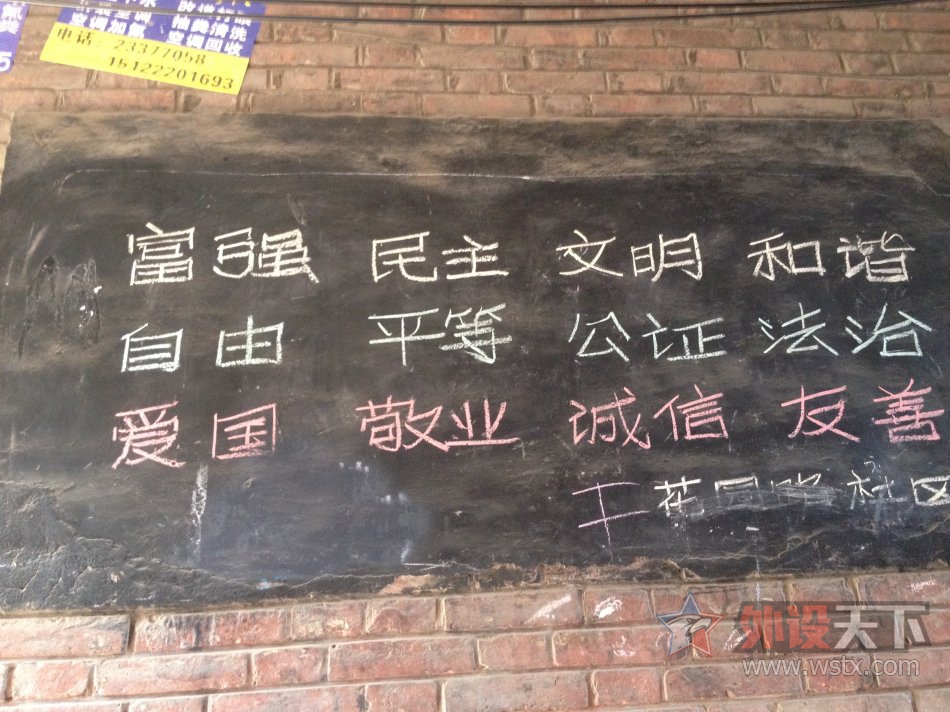 空调加氟 抽粪清洗
空调回收
电话：23377058
15122201693
富强 民主 文明 和谐
自由 平等 公证 法治
爱国 敬业 诚信 友善
花园路社区
外设天下
www.wstx.com